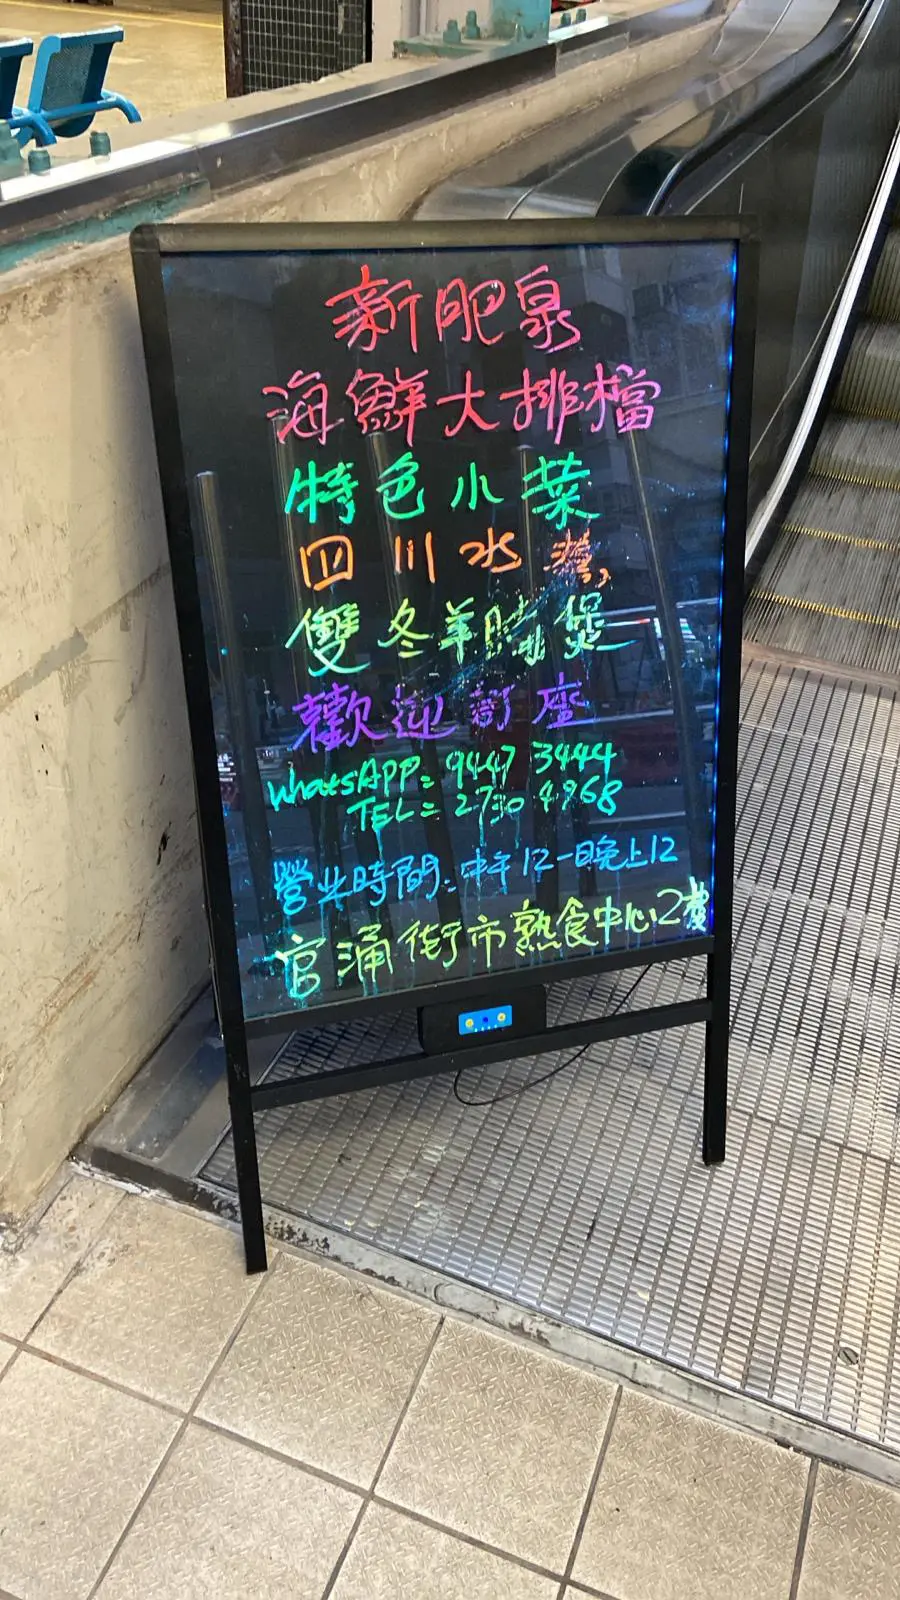 新肥泉
海鮮大排檔
特色小菜
四川水煮,
雙冬羊腩煲
歡迎訂座
WhatsAPP: 9447 3444
TEL: 2730 4968
營业時間: 中午12-晚上12
官涌街市熟食中心2樓